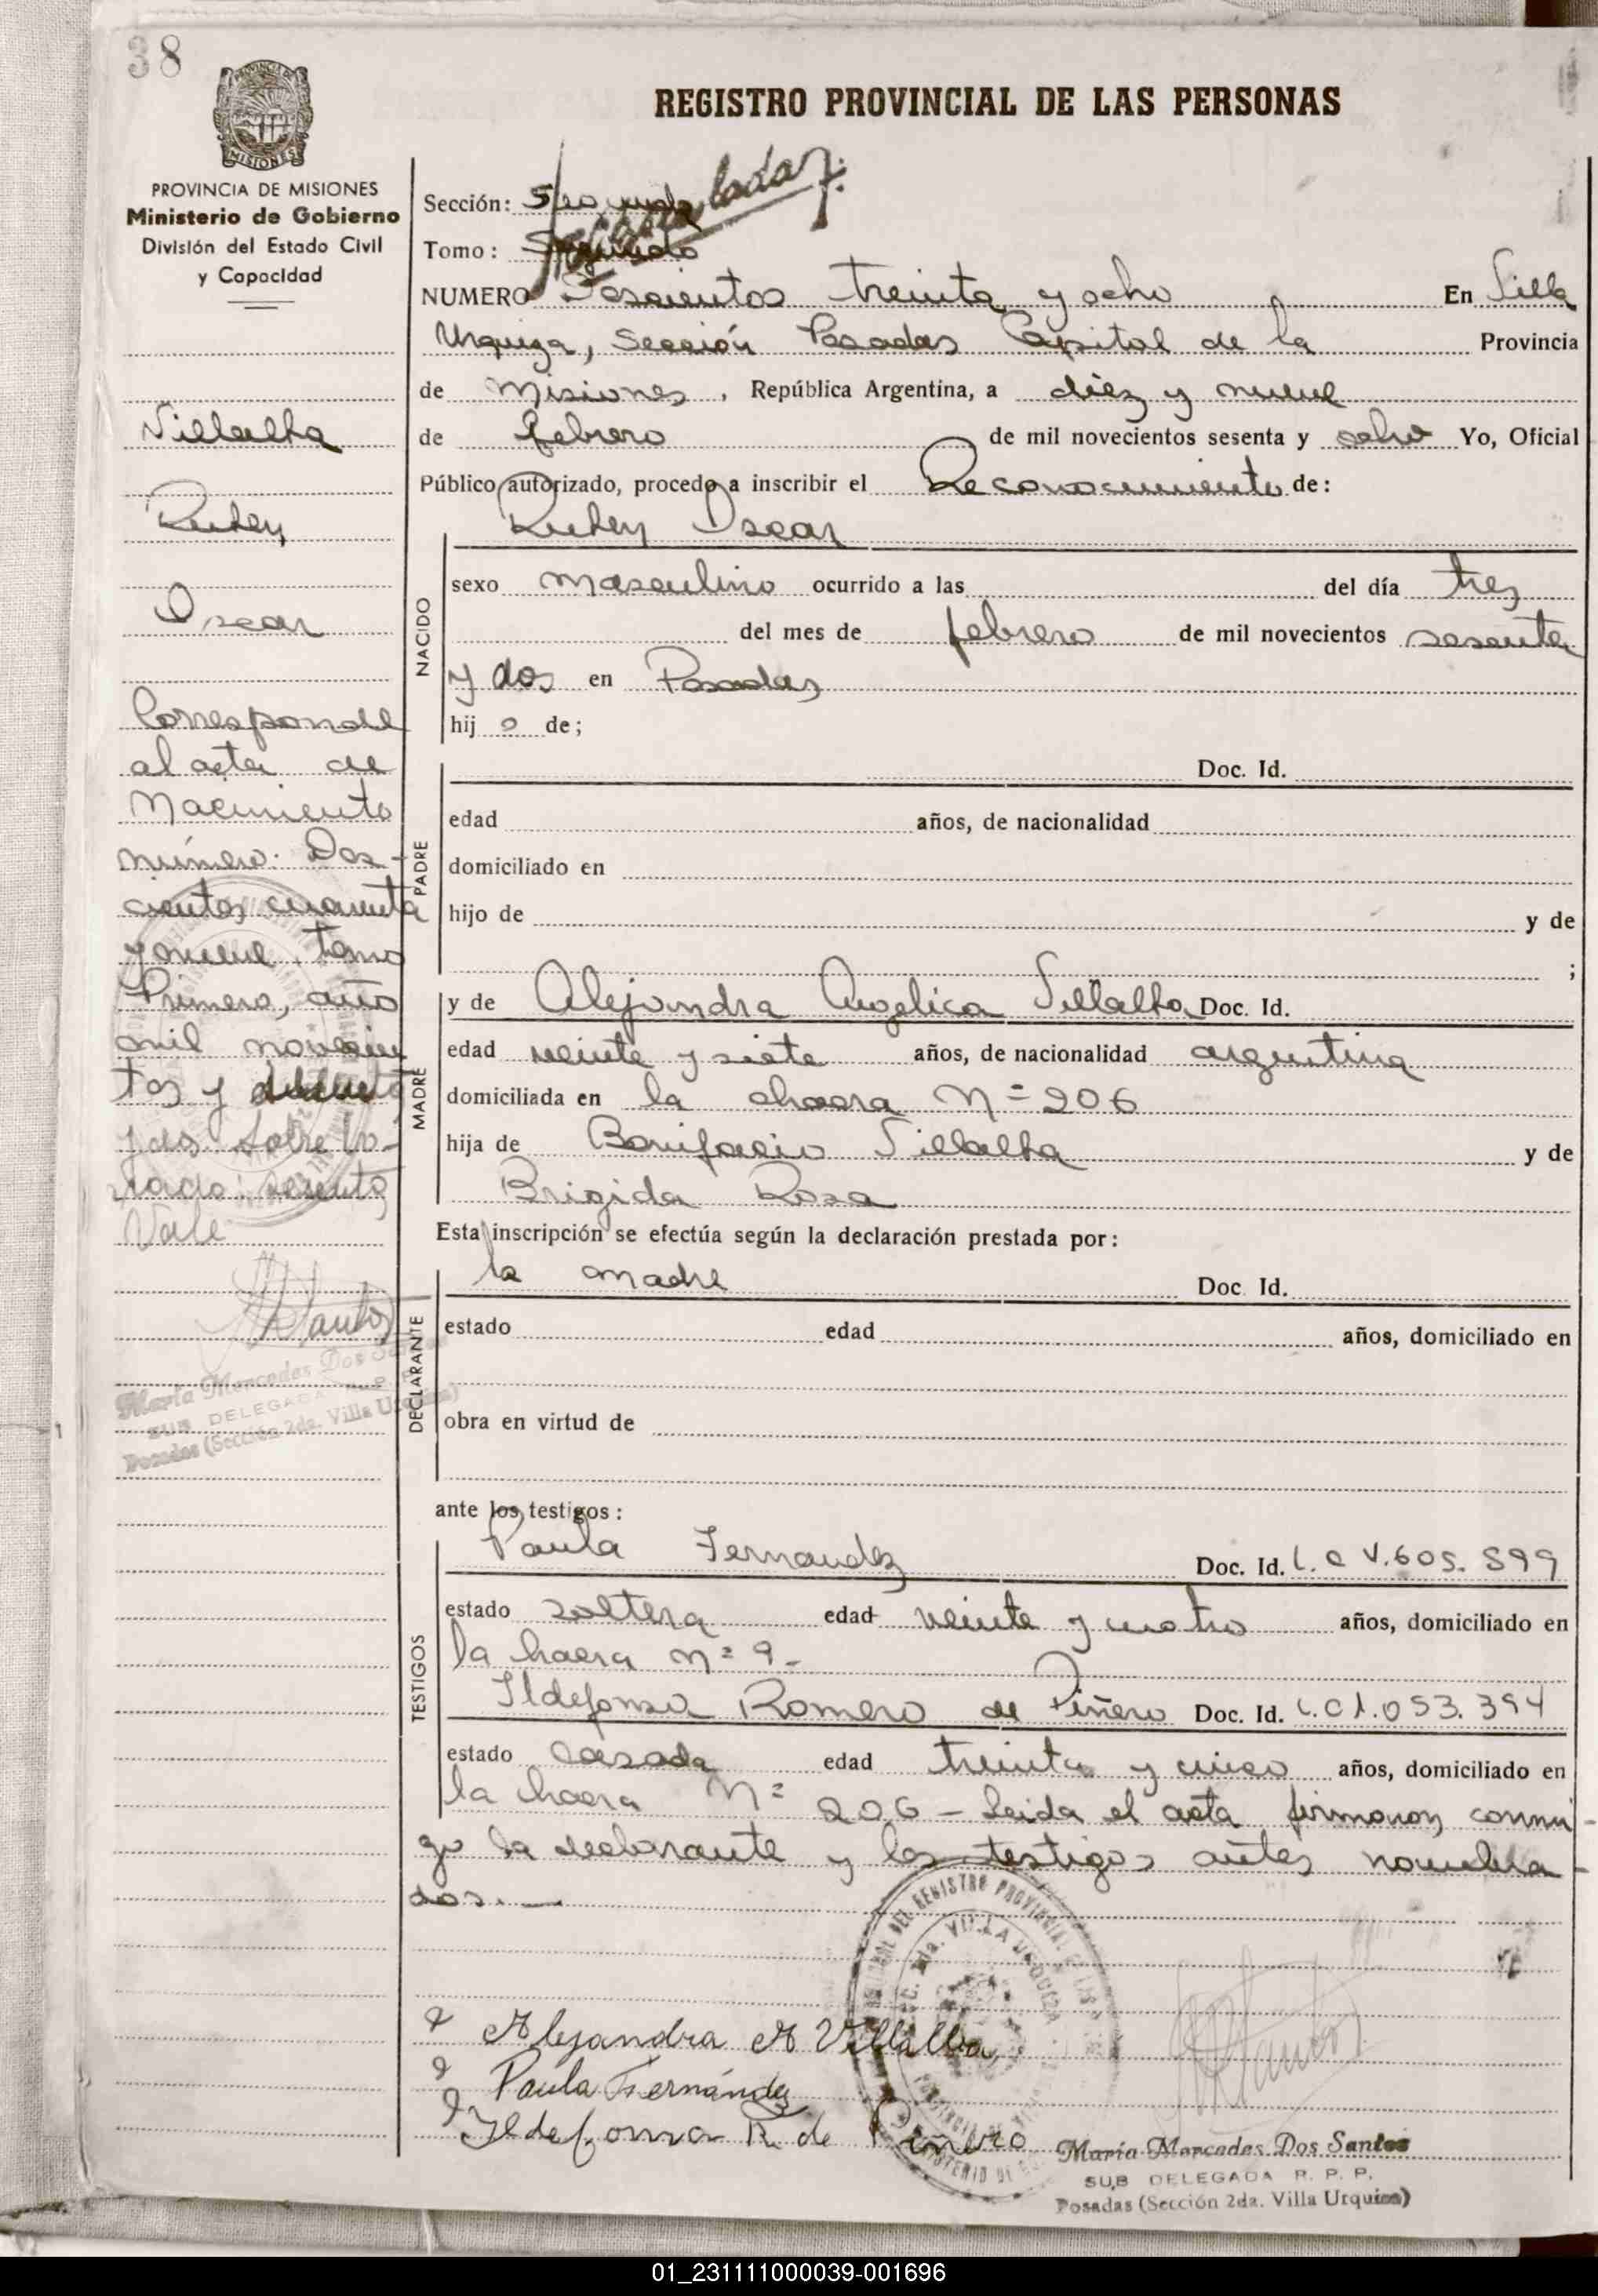 38
REGISTRO PROVINCIAL DE LAS PERSONAS
PROVINCIA DE MISIONES
Ministerio de Gobierno
División del Estado Civil
y Capacidad
Villalba
Ruben
Oscar
Corresponde
al acta de
Nacimiento
número: Dos-
cientos cuarenta
y nueve, tomo
Primero, año
mil novecien
tos y
y dos sobre bo-
rrado: sesenta
Vale
María Mercedes Dos
SUB DELEGADA
Posadas (Sección 2da. Villa
Sección: Segunda
Tomo: Segundo
NUMERO treinta y ocho En Villa
Urquiza, Sección Posadas Capital de la Provincia
de Misiones, República Argentina, a diez y nueve
de febrero de mil novecientos sesenta y ocho Yo, Oficial
Público autorizado, procedo a inscribir el Reconocimiento de:
Ruben Oscar
NACIDO
sexo masculino ocurrido a las del día tres
del mes de febrero de mil novecientos sesenta
y dos en Posadas
hij o de;
PADRE
Doc. Id.
edad años, de nacionalidad
domiciliado en
hijo de y de
;
MADRE
y de Alejandra Angelica Villalba Doc. Id.
edad veinte y siete años, de nacionalidad argentina
domiciliada en la chacra Nº 206
hija de Bonifacio Villalba y de
Brigida Rosa
Esta inscripción se efectúa según la declaración prestada por:
DECLARANTE
la madre Doc. Id.
estado edad años, domiciliado en
obra en virtud de
ante los testigos:
TESTIGOS
Paula Fernandez Doc. Id. L. C V.605.899
estado soltera edad veinte y cuatro años, domiciliado en
la hacra nº 9-
Ildefonsa Romero de Piñero Doc. Id. L.C 1.053.394
estado casada edad treinta y cinco años, domiciliado en
la hacra Nº 206 - Leida el acta firmaron conmi-
go la declarante y los testigos antes nombra-
dos.—
Alejandra A Villalba
Paula Fernández
Ildefonsa R. de Piñero
María Mercedes Dos Santos
SUB DELEGADA R. P. P.
Posadas (Sección 2da. Villa Urquiza)
01_231111000039-001696